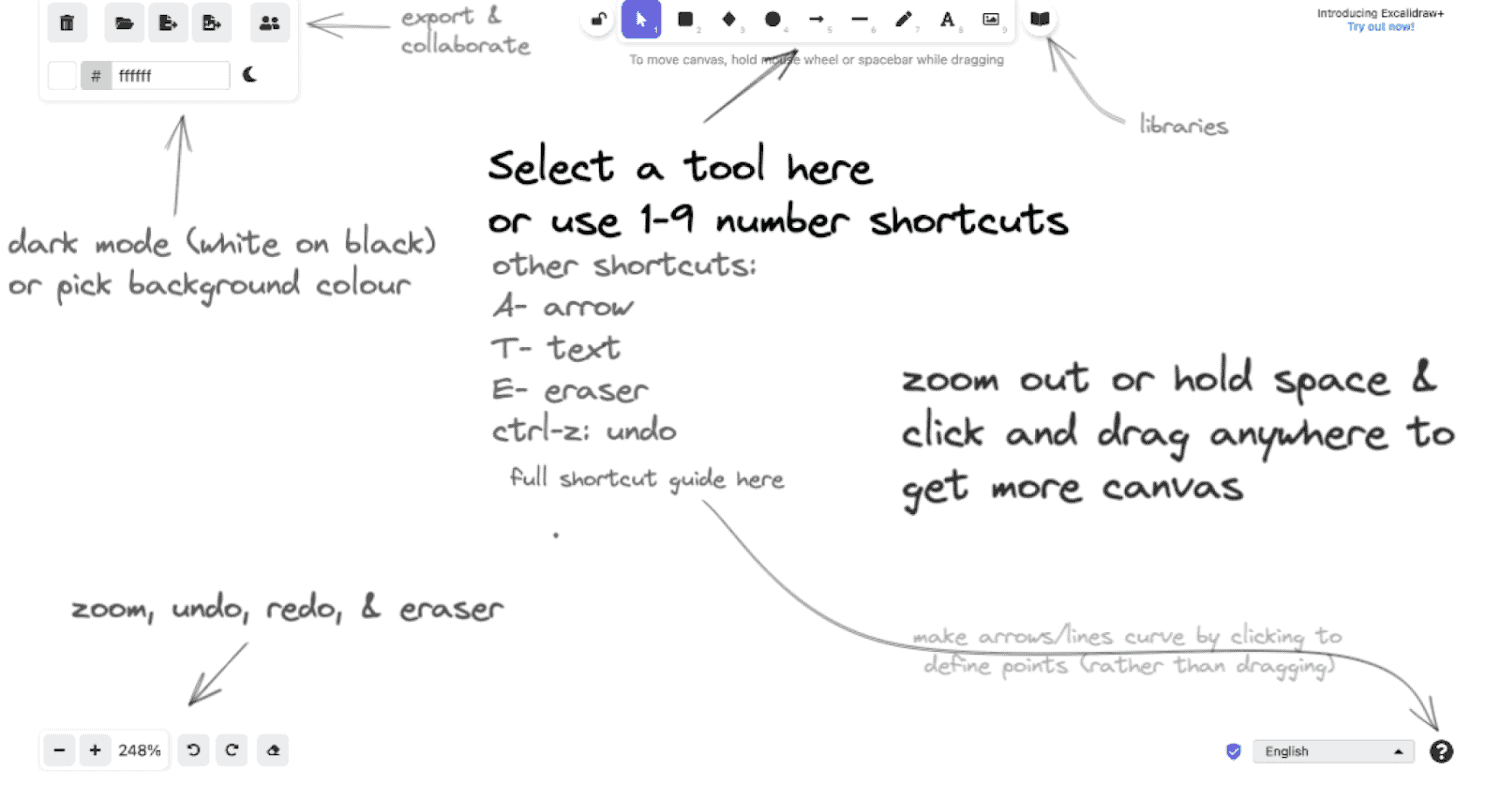 export &
collaborate
# ffffff
1 2 3 4 5 6 7 8 9
To move canvas, hold mouse wheel or spacebar while dragging
Introducing Excalidraw+
Try out now!
libraries
Select a tool here
or use 1-9 number shortcuts
dark mode (white on black)
or pick background colour
other shortcuts:
A- arrow
T- text
E- eraser
ctrl-z: undo
full shortcut guide here
zoom out or hold space &
click and drag anywhere to
get more canvas
zoom, undo, redo, & eraser
make arrows/lines curve by clicking to
define points (rather than dragging)
− + 248%
English
?